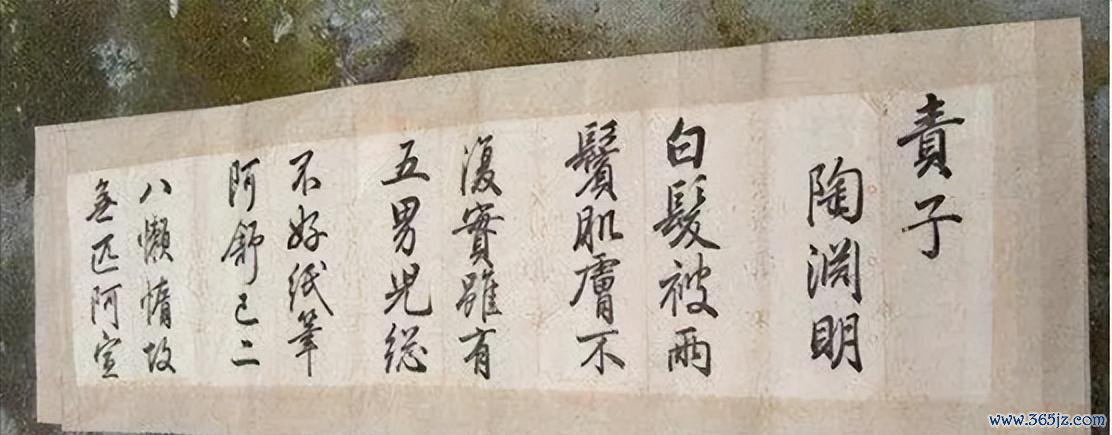 責子
陶淵明
白髮被兩
鬢肌膚不
復實雖有
五男兒総
不好紙筆
阿舒已二
八懶惰故
無匹阿宣
www.365jz.com